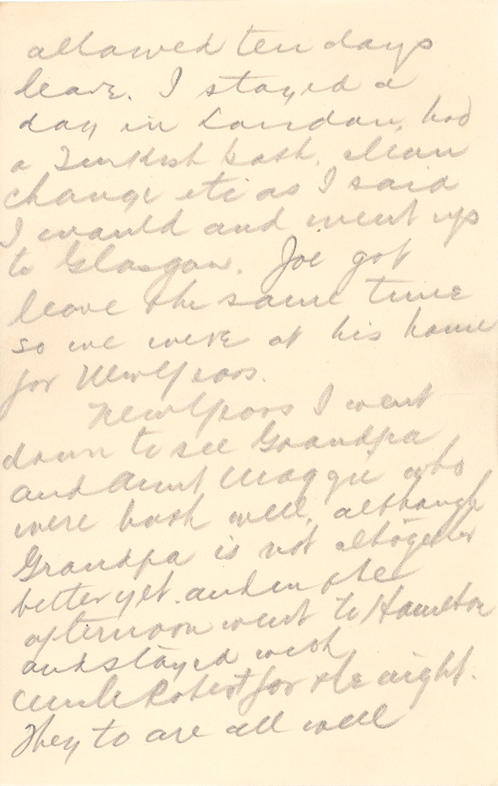 allowed ten days
leave. I stayed a
day in London, had
a Turkish bath, clean
change etc as I said
I would and went up
to Glasgow. Joe got
leave the same time
so we were at his home
for NewYears.
NewYears I went
down to see Grandpa
and Aunt Maggie who
were both well, although
Grandpa is not altogether
better yet. and in the
afternoon went to Hamilton
and stayed with
Uncle Robert for the night.
They to are all well